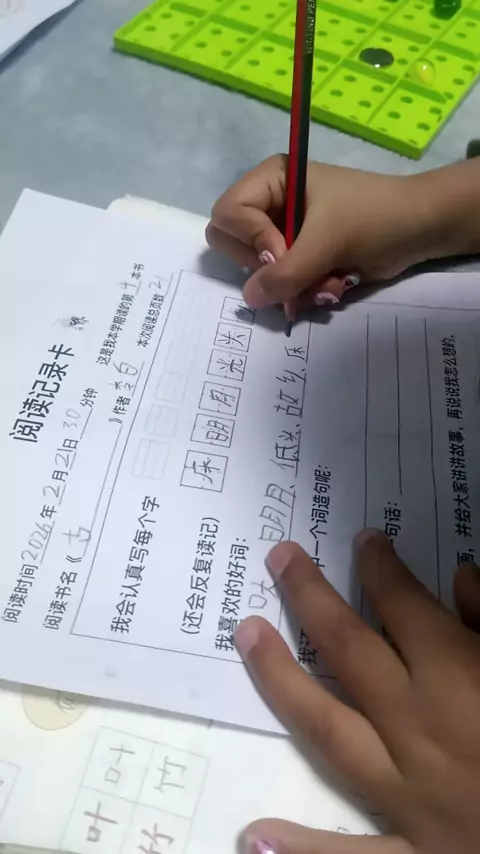 阅读记录卡
阅读时间2026年2月21日30分钟 这是我本学期读的第4本书
阅读书名《古 》作者李白 本次阅读总页数21
我会认真写每个字
(还会反复读记)
床明月光头
我喜欢的好词:
明月、低头、故乡、床
一个词造句呢:
句话:
画,并给大家讲讲故事,再说说我怎么想的。
叶 叶
竹 竹
WRITING PEN